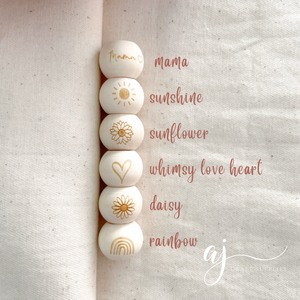 Mama
mama
sunshine
sunflower
whimsy love heart
daisy
rainbow
aj